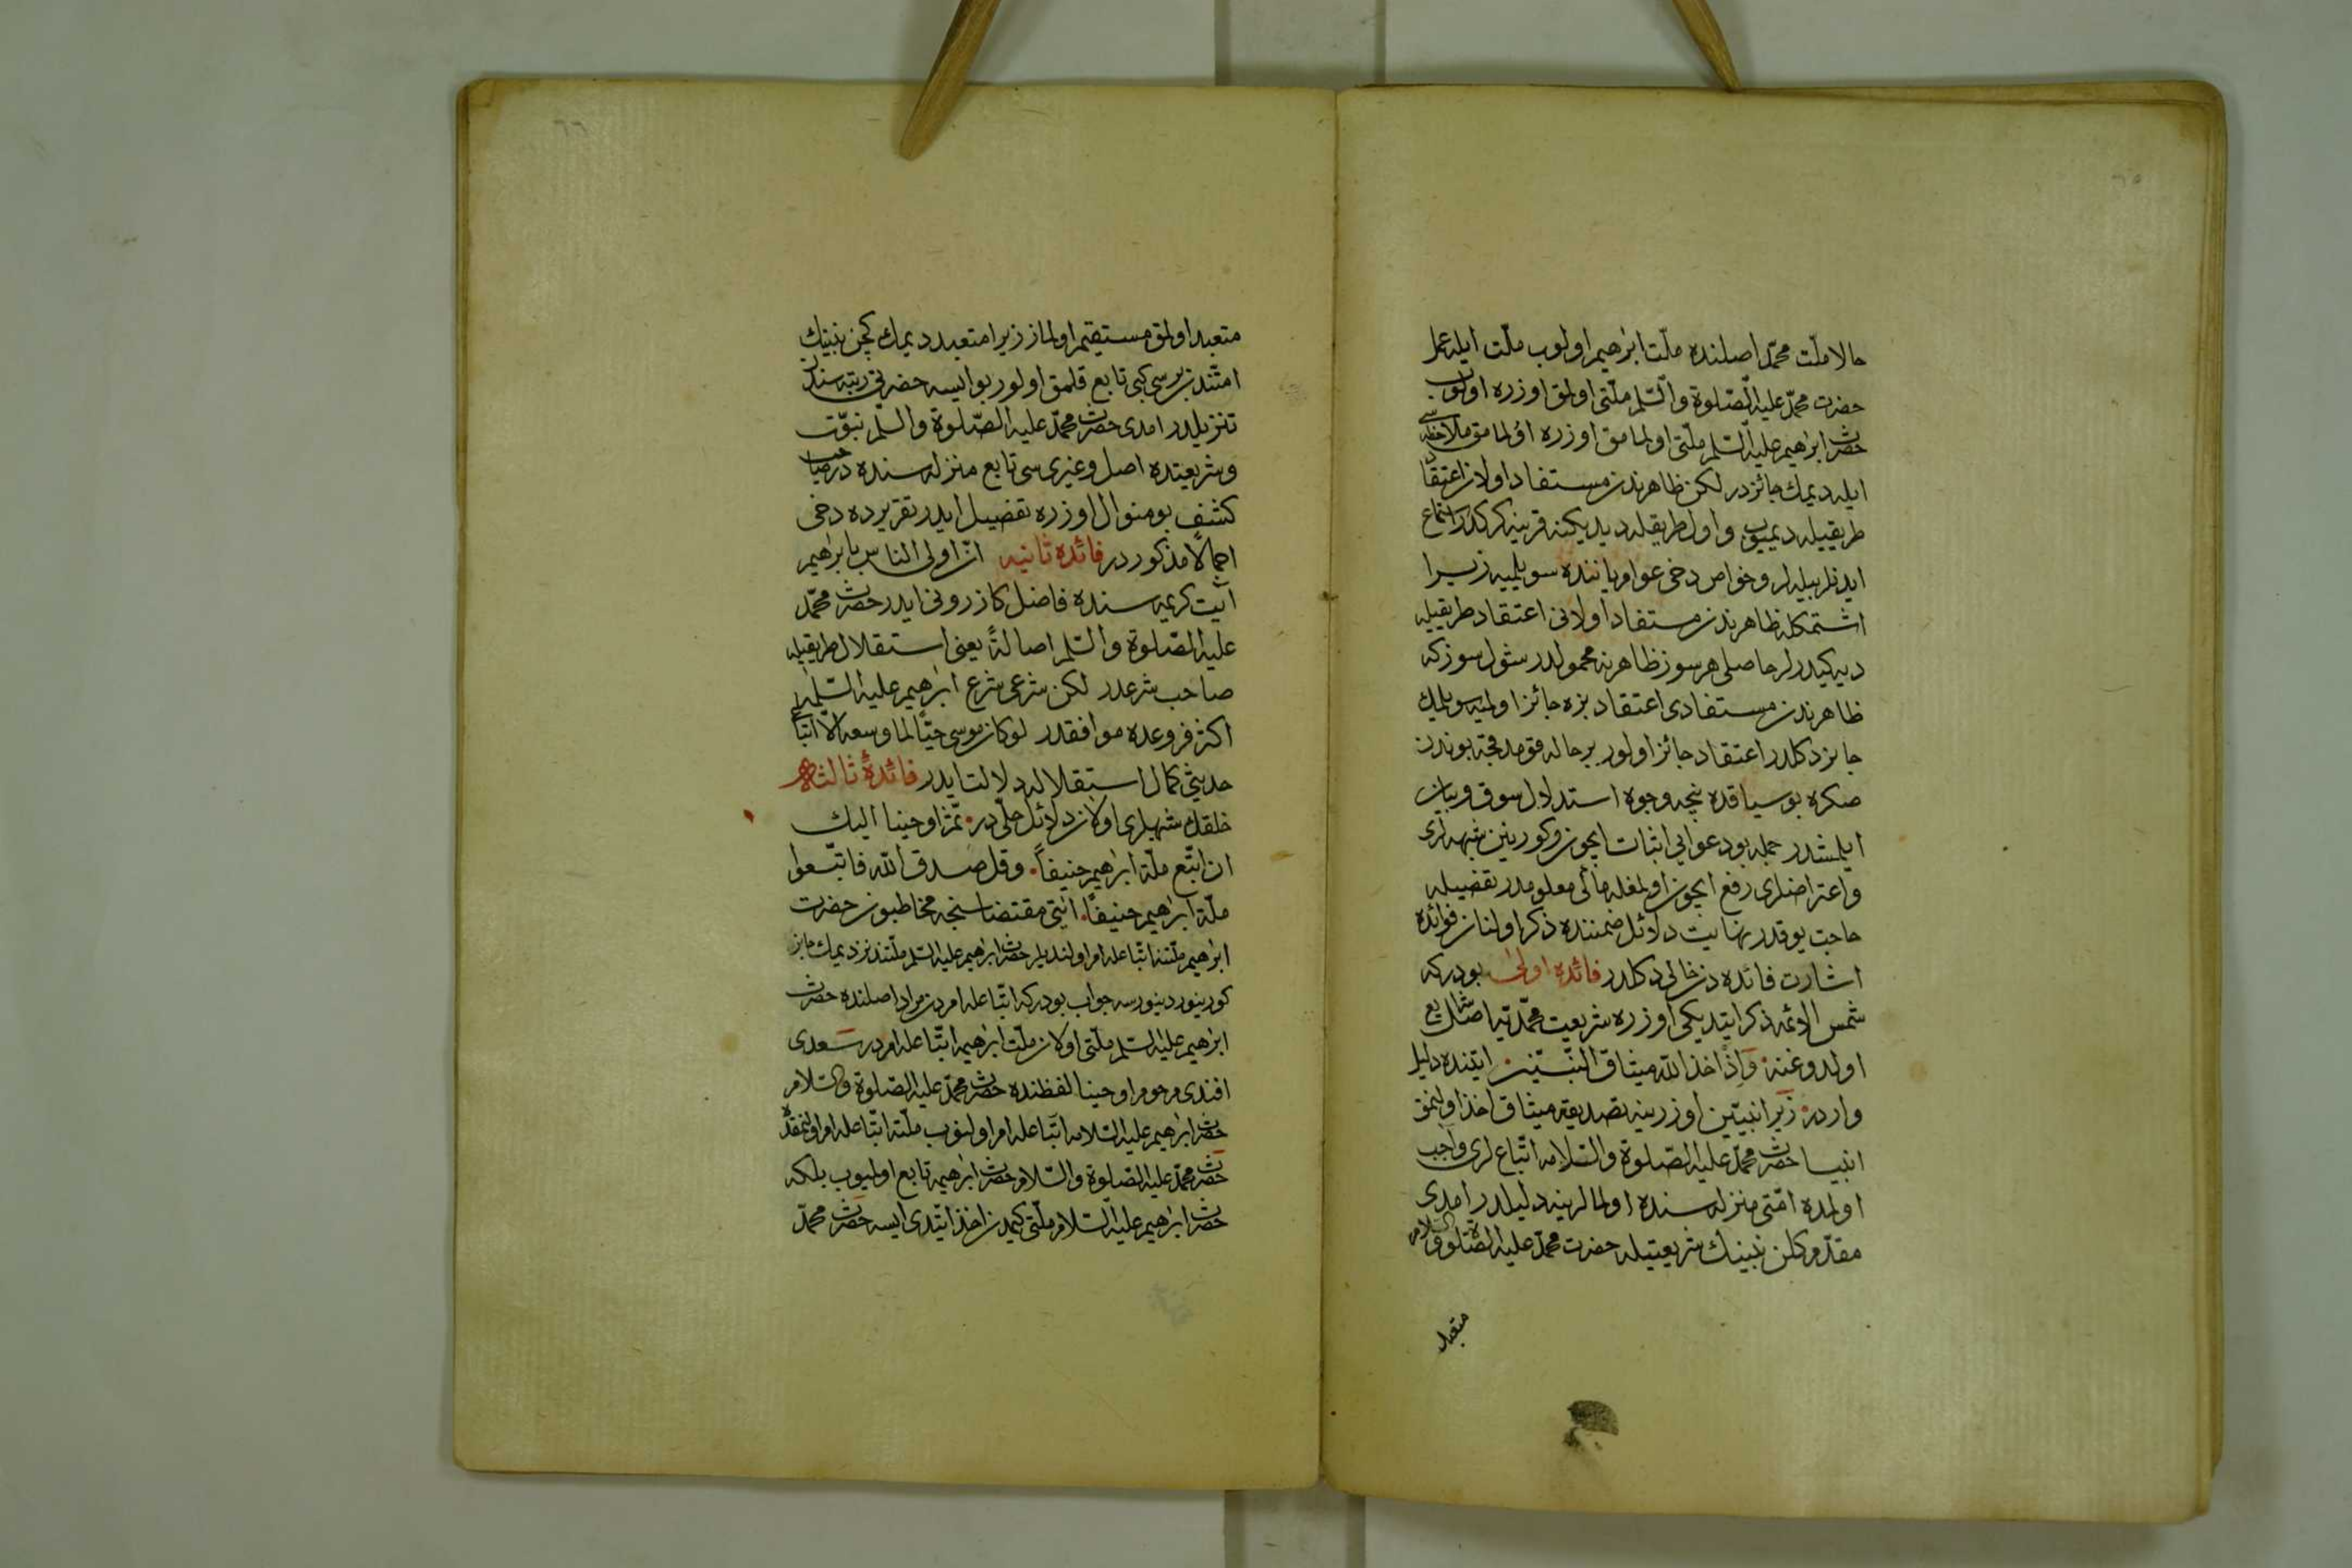 ٦٥
حالا ملّت محمّد اصلنده ملّت ابرٰهیم اولوب ملّت ایله عمل
حضرت محمّد علیه الصّلوة والسّلم ملّتی اولمق اوزره اولوب
حضرت ابرٰهیم علیه السّلم ملّتی اولمامق اوزره اولمامق ملاحظه سی
ایله دیمك جائزدر لكن ظاهرندن مستفاد اولان اعتقاد
طریقیله دیمیوب و اول طریقله دیدیكنه قرینه كركدر استماع
ایدنلر بیله لر و خواص دخی عوام یاننده سویلمیه زیرا
اشتمكله ظاهرندن مستفاد اولانی اعتقاد طریقیله
دیه كیدرلر حاصلی هر سوز ظاهرینه محمولدر شول سوز كه
ظاهرندن مستفادی اعتقاد بزه جائز اولمیه سویلمك
جایز دكلدر اعتقاد جائز اولور بر حاله قومدقجه بوندن
صكره بو سیاقده نیجه وجوه استدلال سوق و بیان
ایلمشدر جمله بو دعوایی اثبات ایچون و كورینن شبهه لری
و اعتراضلری رفع ایچون اولمغله مآلی معلومدر تفصیله
حاجت یوقدر نهایت دلائل ضمننده ذكر اولنان فوائده
اشارت فائده دن خالی دكلدر فائده اولی بودر كه
شمس الائمه ذكر ایتدیكی اوزره شریعت محمّدیه اصل شرایع
اولدوغنه وَاِذْ اخذ الله میثاق النّبیّین ایتنده دلیل
واردر زیرا نبیّین اوزرینه تصدیقه میثاق اخذ اولنمق
انبیا حضرت محمّد علیه الصّلوة والسّلامه اتّباع لری واجب
اولمده امّتی منزله سنده اولمالرینه دلیلدر امدی
مقدّم كلن نبینك شریعتیله حضرت محمّد علیه الصّلوة والسّلامه
متعبد
٦٦
متعبد اولمق مستقیم اولماز زیرا متعبددر دیمك كچن نبینك
امّتندن بریسی كبی تابع قلمق اولور بو ایسه حضرتی رتبه سندن
تنزیلدر امدی حضرت محمّد علیه الصّلوة والسّلم نبوّت
و شریعتده اصل و غیریسی تابع منزله سنده در صاحب
كشف بو منوال اوزره تفضیل ایدر تقریرده دخی
اجمالًا مذكوردر فائده ثانیه انّ اولی الناس بابرٰهیم
آیت كریمه سنده فاضل كازرونی ایدر حضرت محمّد
علیه الصّلوة والسّلم اصالةً یعنی استقلال طریقیله
صاحب شرعدر لكن شرعی شرع ابرٰهیم علیه السّلمه
اكثر فروعده موافقدر لو كان موسی حیًّا لما وسعه الّا اتّباعی
حدیثی كمال استقلاله دلالت ایدر فائدهٔ ثالثه
خلقك شبهه لری اولان دلائل حلّیدر ثمّ اوحینا الیك
ان اتّبع ملّة ابرٰهیم حنیفاً وقل صدق الله فاتّبعوا
ملّة ابرٰهیم حنیفًا ایتی مقتضاسنجه مخاطبون حضرت
ابرٰهیم ملّتنه اتّباعله امر اولندیلر حضرت ابرٰهیم علیه السّلم ملّتندنز دیمك جایز
كورینور دینورسه جواب بودر كه اتّباعله امردن مراد اصلنده حضرت
ابرٰهیم علیه السّلم ملّتی اولان ملّت ابرٰهیمه اتّباعله امردر سعدی
افندی مرحوم اوحینا لفظنده حضرت محمّد علیه الصّلوة والسّلام
حضرت ابرٰهیم علیه السّلامه اتّباعله امر اولنوب ملّته اتّباعله امر اولنمقده
حضرت محمّد علیه الصّلوة والسّلام حضرت ابرٰهیمه تابع اولمیوب بلكه
حضرت ابرٰهیم علیه السّلام ملّتی كیمدن اخذ ایتدی ایسه حضرت محمّد